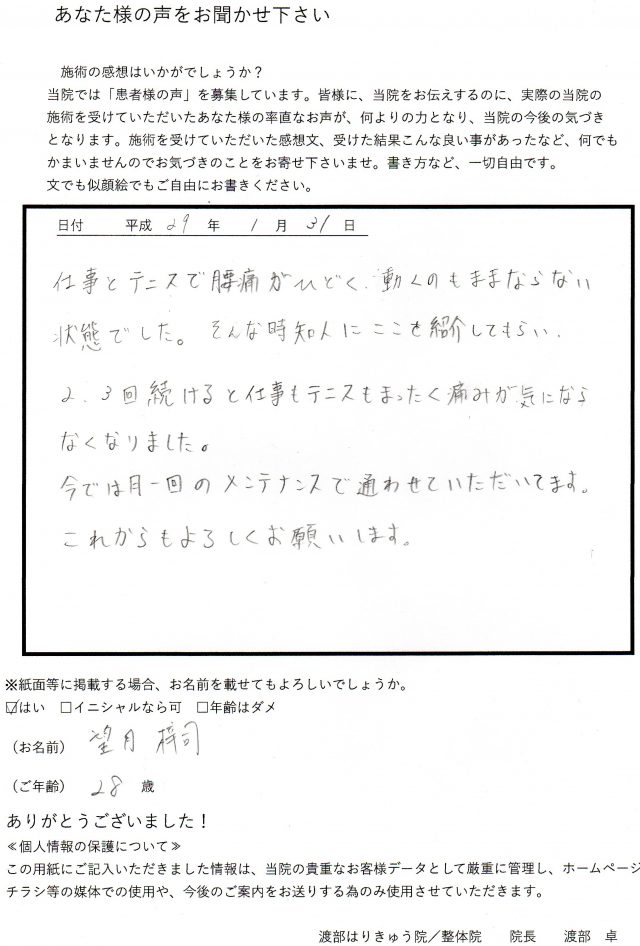 あなた様の声をお聞かせ下さい
施術の感想はいかがでしょうか？
当院では「患者様の声」を募集しています。皆様に、当院をお伝えするのに、実際の当院の
施術を受けていただいたあなた様の率直なお声が、何よりの力となり、当院の今後の気づき
となります。施術を受けていただいた感想文、受けた結果こんな良い事があったなど、何でも
かまいませんのでお気づきのことをお寄せ下さいませ。書き方など、一切自由です。
文でも似顔絵でもご自由にお書きください。
日付 平成 29 年 1 月 31 日
仕事とテニスで腰痛がひどく、動くのもままならない
状態でした。そんな時知人にここを紹介してもらい、
2、3回続けると仕事もテニスもまったく痛みが気になら
なくなりました。
今では月一回のメンテナンスで通わせていただいてます。
これからもよろしくお願いします。
※紙面等に掲載する場合、お名前を載せてもよろしいでしょうか。
☑はい □イニシャルなら可 □年齢はダメ
（お名前） 望月 梓司
（ご年齢） 28 歳
ありがとうございました！
≪個人情報の保護について≫
この用紙にご記入いただきました情報は、当院の貴重なお客様データとして厳重に管理し、ホームページ
チラシ等の媒体での使用や、今後のご案内をお送りする為のみ使用させていただきます。
渡部はりきゅう院／整体院 院長 渡部 卓